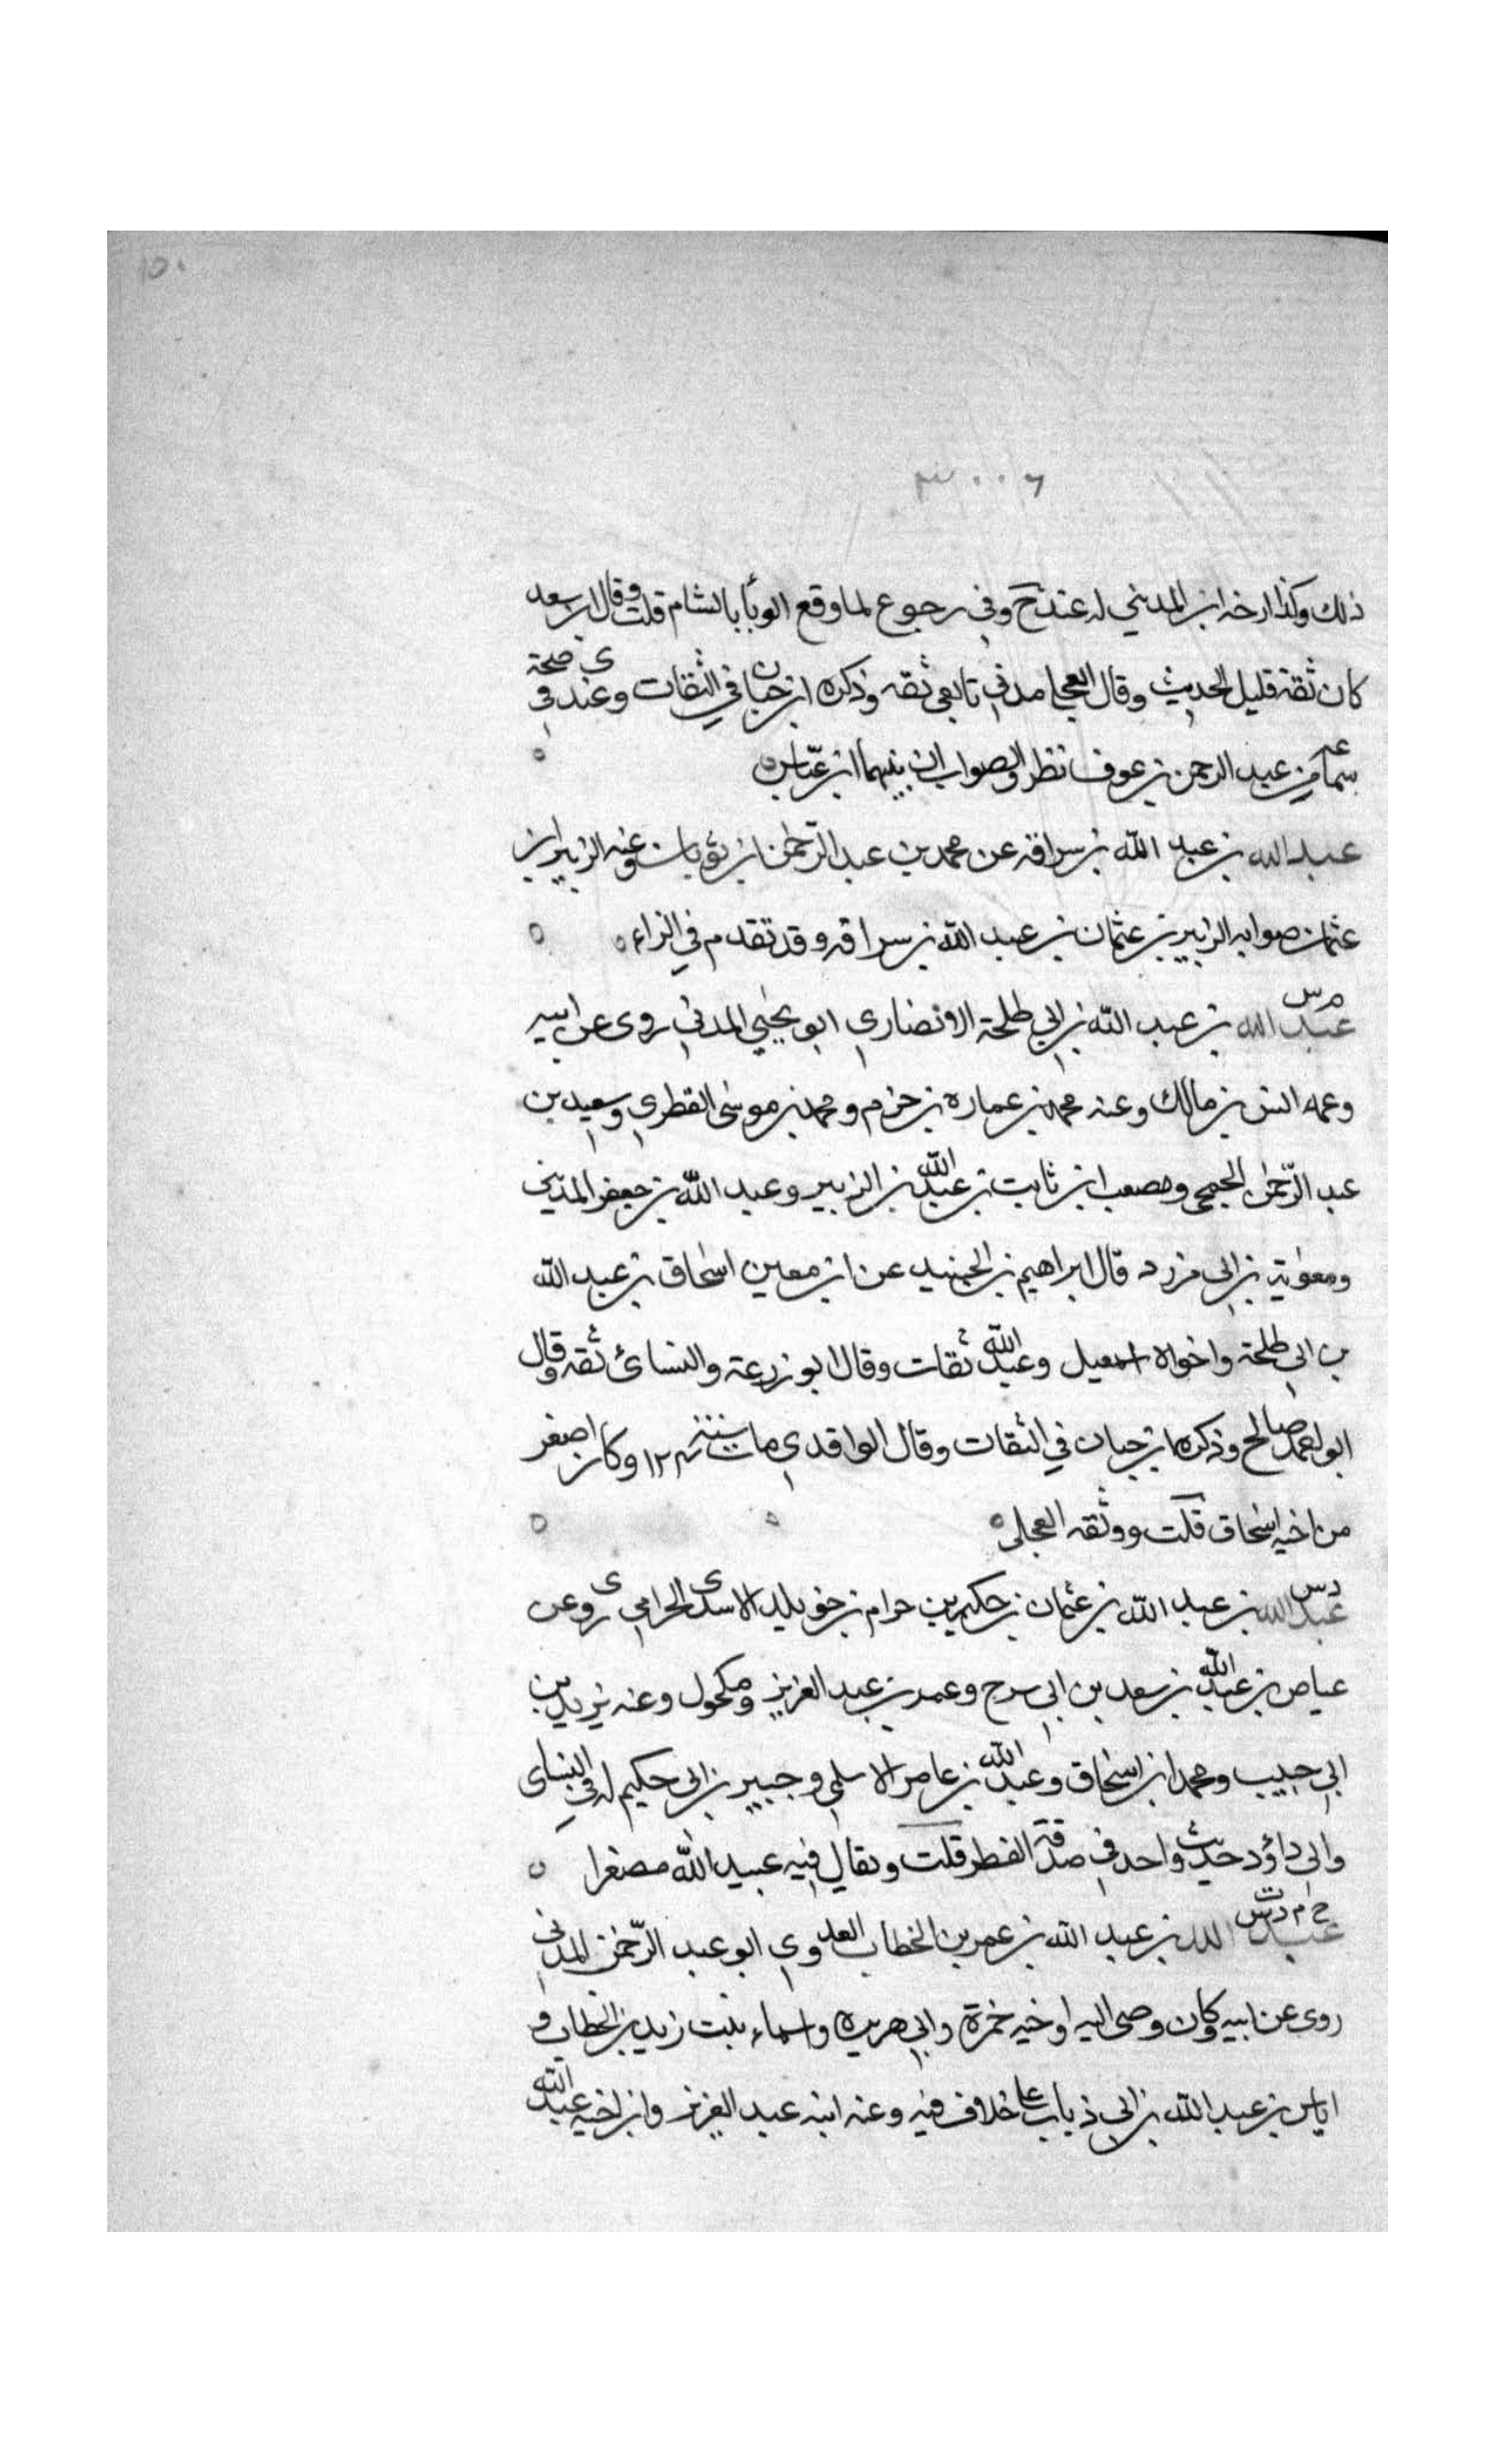 ١٥٠
٣٠٠٦
ذلك وكذا ارخه ابن المديني له عندهم وفي رجوع لما وقع الوبأ بالشام قلت وقال ابن سعد
كان ثقة قليل الحديث وقال العجلي مدني تابعي ثقه وذكره ابن حبان في الثقات وعندي في صحة
سماعه من عبد الرحمن بن عوف نظر والصواب ان بينهما ابن عباس
عبد الله بن عبد الله بن سراقه عن محمد بن عبد الرحمن ابن ثوبان وعنه الزبير ابن
عثمان صوابه الزبير بن عثمان بن عبد الله بن سراقه وقد تقدم في الزاء
م س
عبد الله بن عبد الله بن ابي طلحة الانصاري ابو يحيى المدني روى عن ابيه
وعمه انس بن مالك وعنه محمد بن عمارة بن حزم ومحمد بن موسى الفطري وسعيد بن
عبد الرحمن الجمحي ومصعب ابن ثابت بن عبد الله بن الزبير وعبد الله بن جعفر المديني
ومعوية بن ابي مزرد قال ابراهيم بن الجنيد عن ابن معين اسحاق بن عبد الله
بن ابي طلحة واخواه اسمعيل وعبد الله ثقات وقال ابو زرعة والنسائ ثقه وقال
ابو احمد صالح وذكره ابن حبان في الثقات وقال الواقدي مات سنة ١٣٤ وكان اصغر
من اخيه اسحاق قلت ووثقه العجلي
د س
عبد الله بن عبد الله بن عثمان بن حكيم بن حزام بن خويلد الاسدي الحزامي روى عن
عياض بن عبد الله بن سعد بن ابي سرح وعمر بن عبد العزيز ومكحول وعنه يزيد بن
ابي حبيب ومحمد ابن اسحاق وعبد الله بن عامر الاسلمي وجبير بن ابي حكيم له في النساى
وابي داؤد حديث واحد في صدقة الفطر قلت ويقال فيه عبيد الله مصغرا
خ م د ت س
عبد الله بن عبد الله بن عمر بن الخطاب العدوي ابو عبد الرحمن المدني
روى عن ابيه وكان وصى اليه او خيه حمزة وابي هريره واسماء بنت زيد بن الخطاب و
اياس بن عبد الله بن ابي ذباب على خلاف فيه وعنه ابنه عبد العزيز وابن اخيه عبد الله